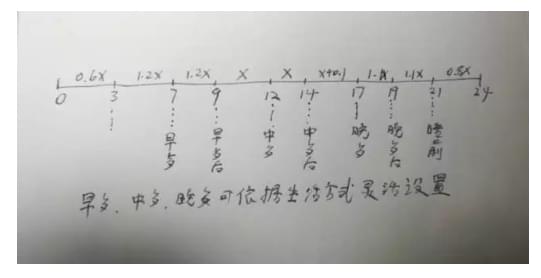 0.6X 1.2X 1.2X X X X+0.1 1.1X 1.1X 0.8X
0 3 7 9 12 14 17 19 21 24
早歺 早歺后 中歺 中歺后 晚歺 晚歺后 睡前
早歺、中歺、晚歺可依据生活方式灵活设置